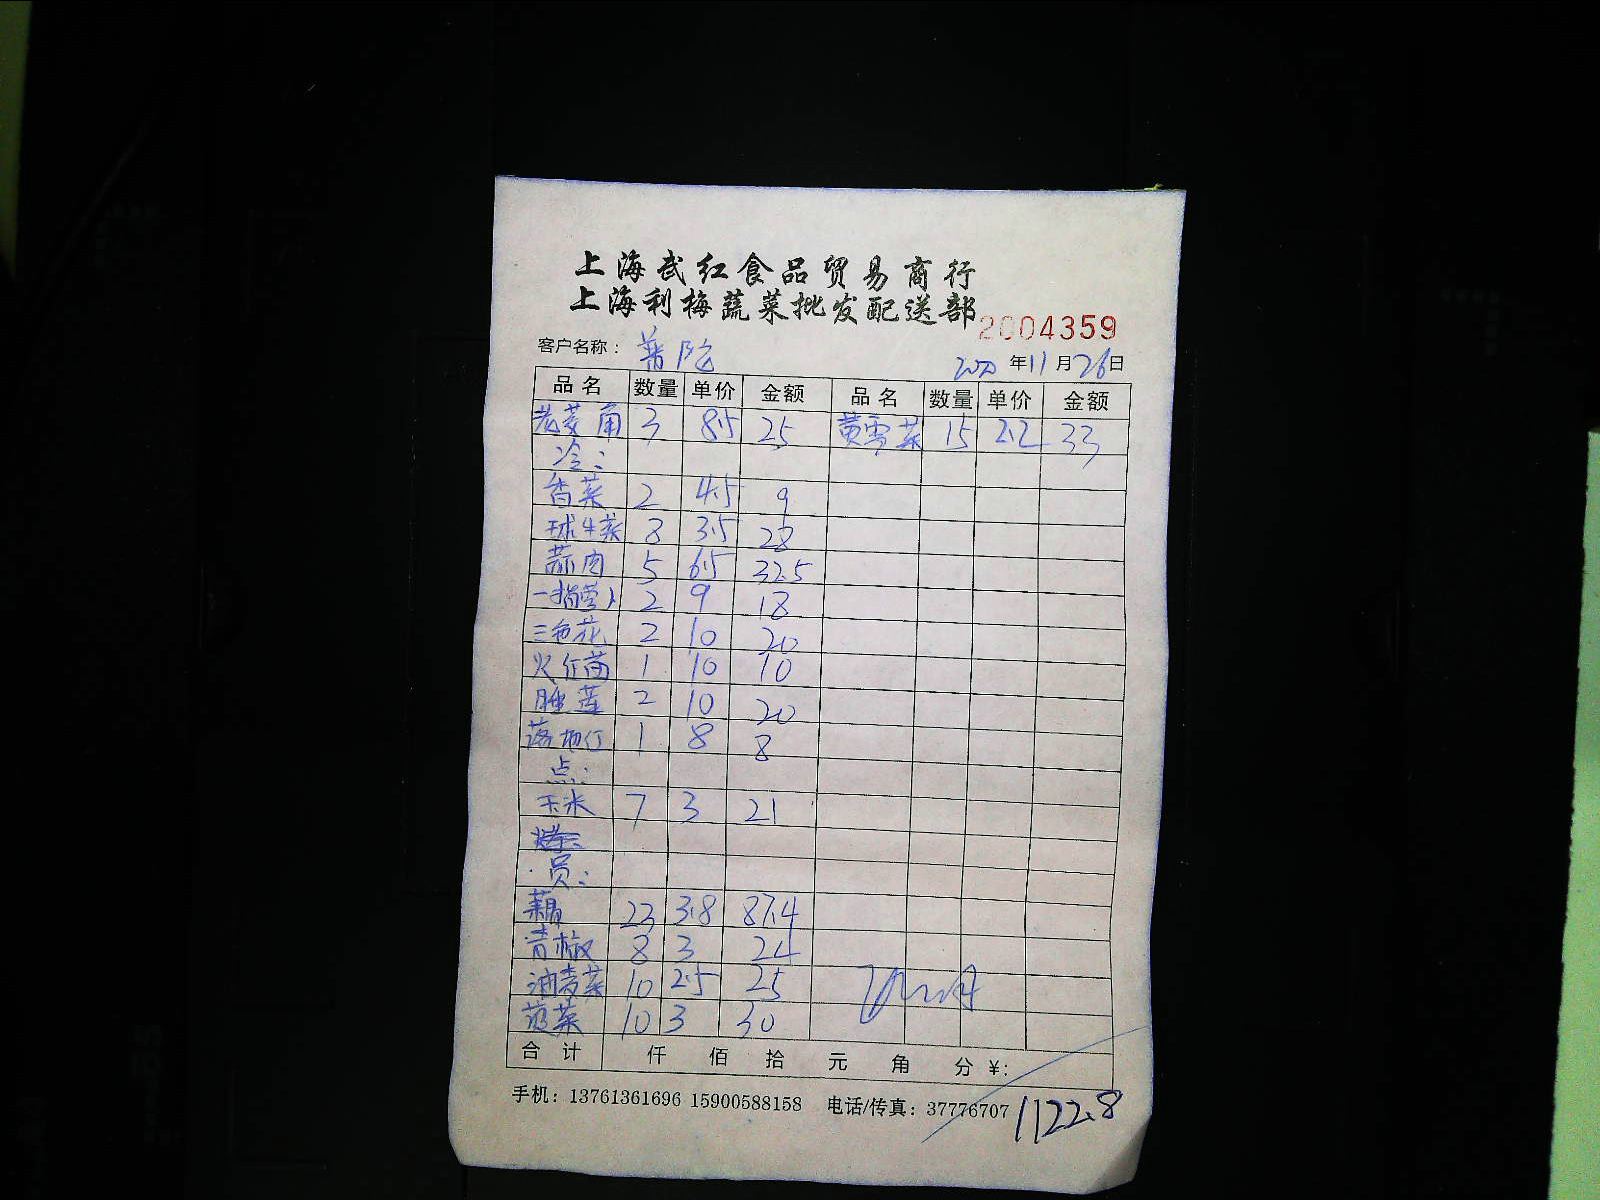 上海武红食品贸易商行
上海利梅蔬菜批发配送部
2004359
客户名称： 普陀 2020 年 11 月 26 日
品名 数量 单价 金额 品名 数量 单价 金额
老菱角 3 8.5 25 黄雪菜 15 2.2 33
冷：
香菜 2 4.5 9
球生菜 8 3.5 28
蒜肉 5 6.5 32.5
一指萝卜 2 9 18
三色花 2 10 20
火红菌 1 10 10
睡莲 2 10 20
落地红 1 8 8
点：
玉米 7 3 21
员：
藕 23 3.8 87.4
青椒 8 3 24
油麦菜 10 2.5 25
菠菜 10 3 30
合计 仟 佰 拾 元 角 分 ¥:
手机：13761361696 15900588158 电话/传真：37776707 1122.8